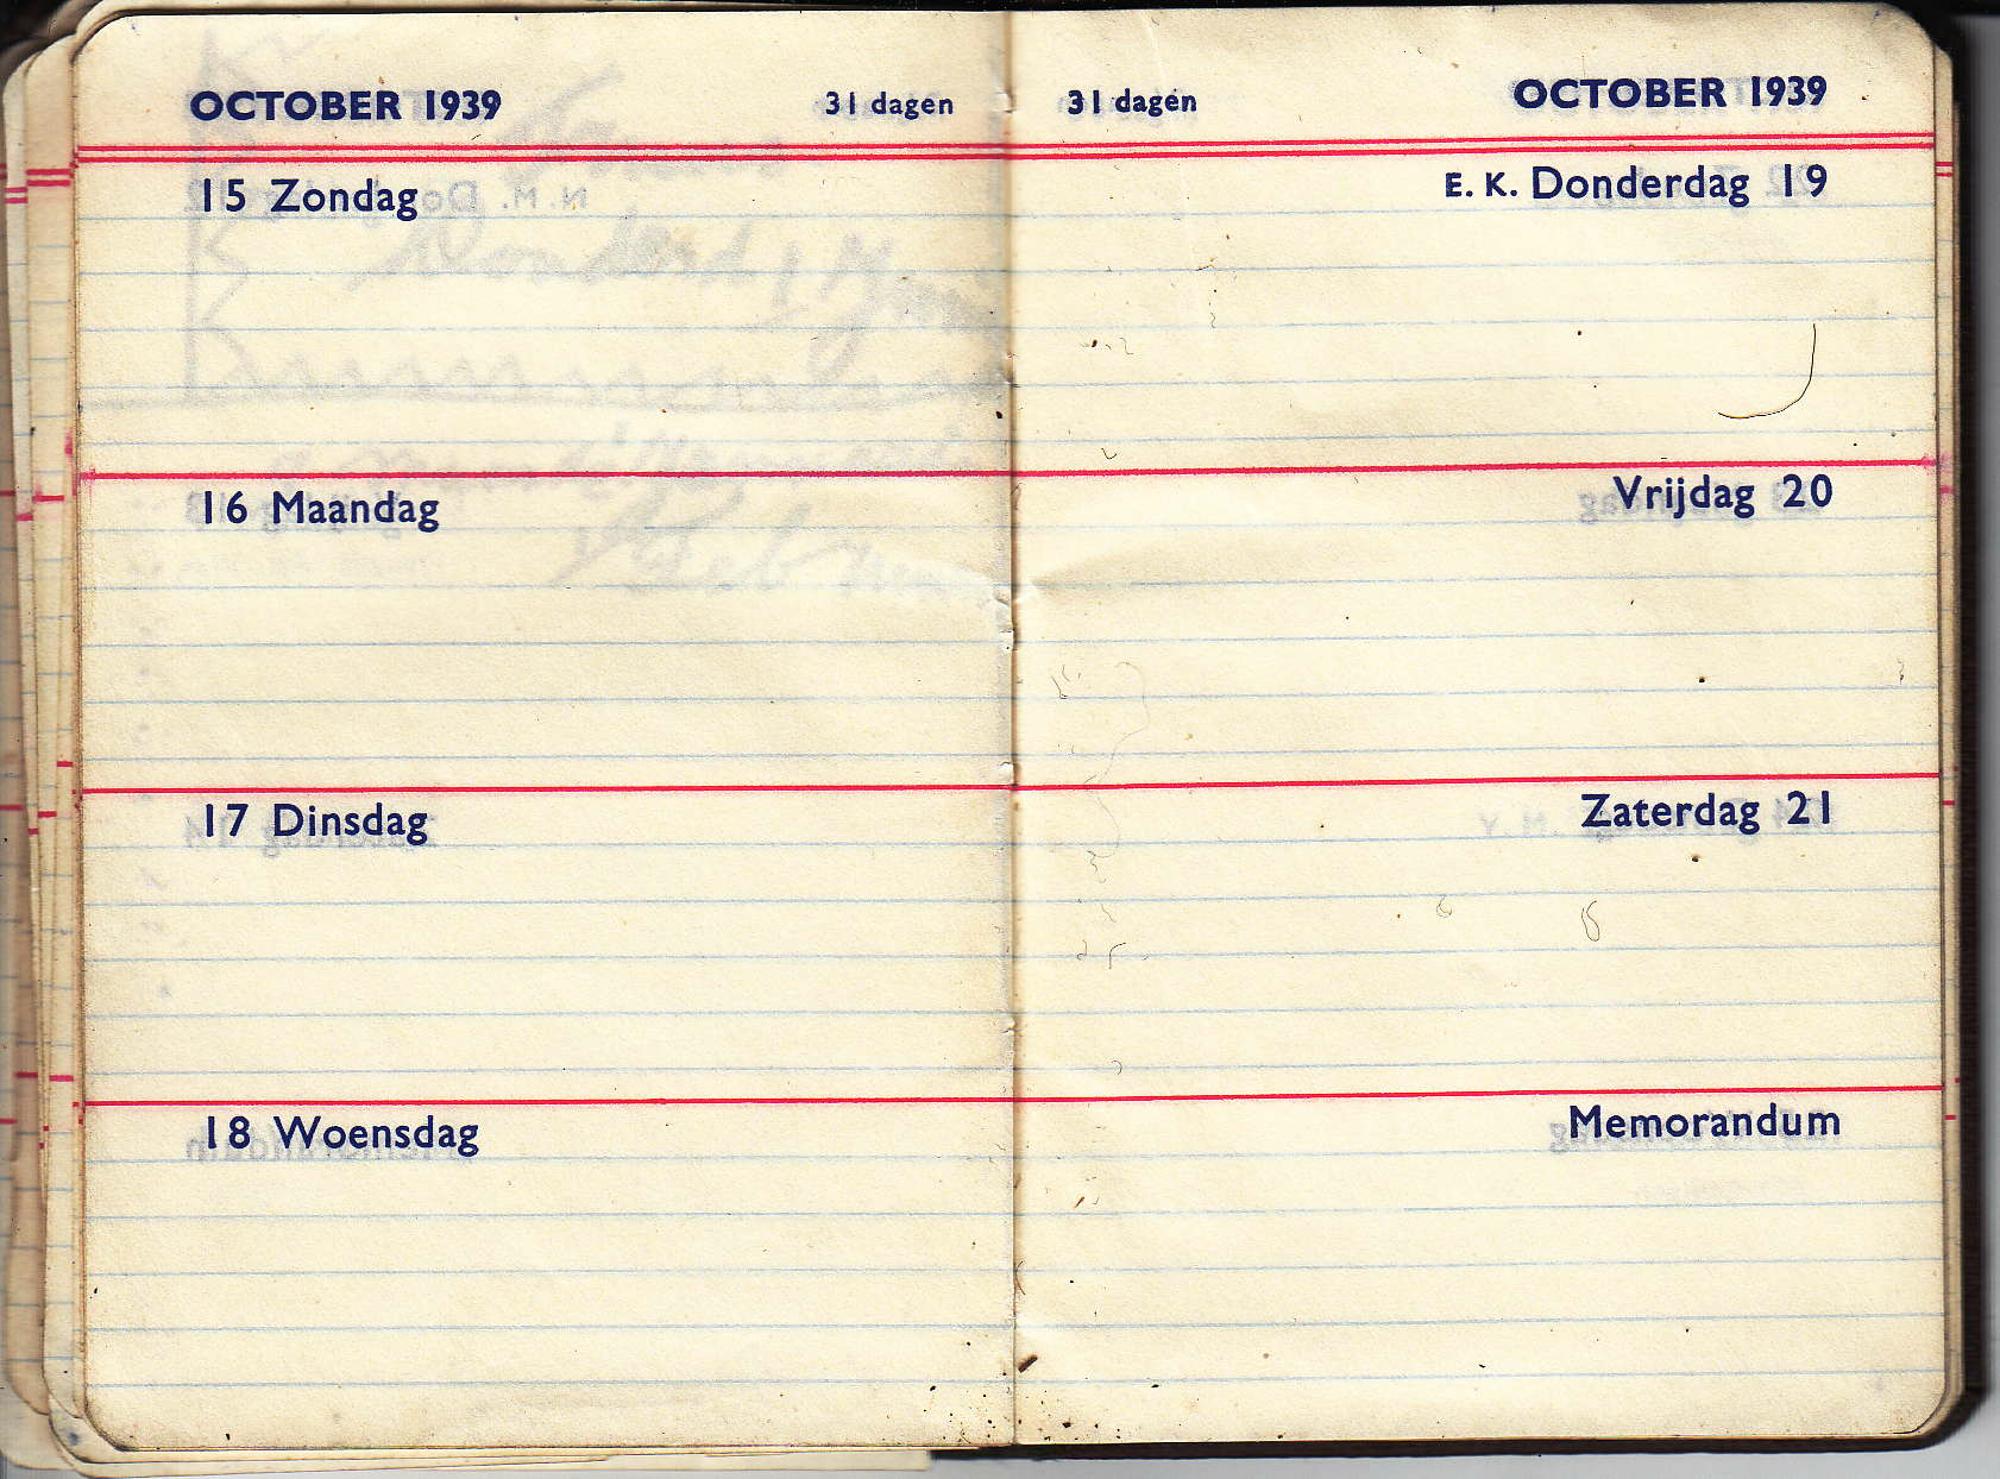 OCTOBER 1939 31 dagen
15 Zondag
16 Maandag
17 Dinsdag
18 Woensdag
31 dagen OCTOBER 1939
E. K. Donderdag 19
Vrijdag 20
Zaterdag 21
Memorandum